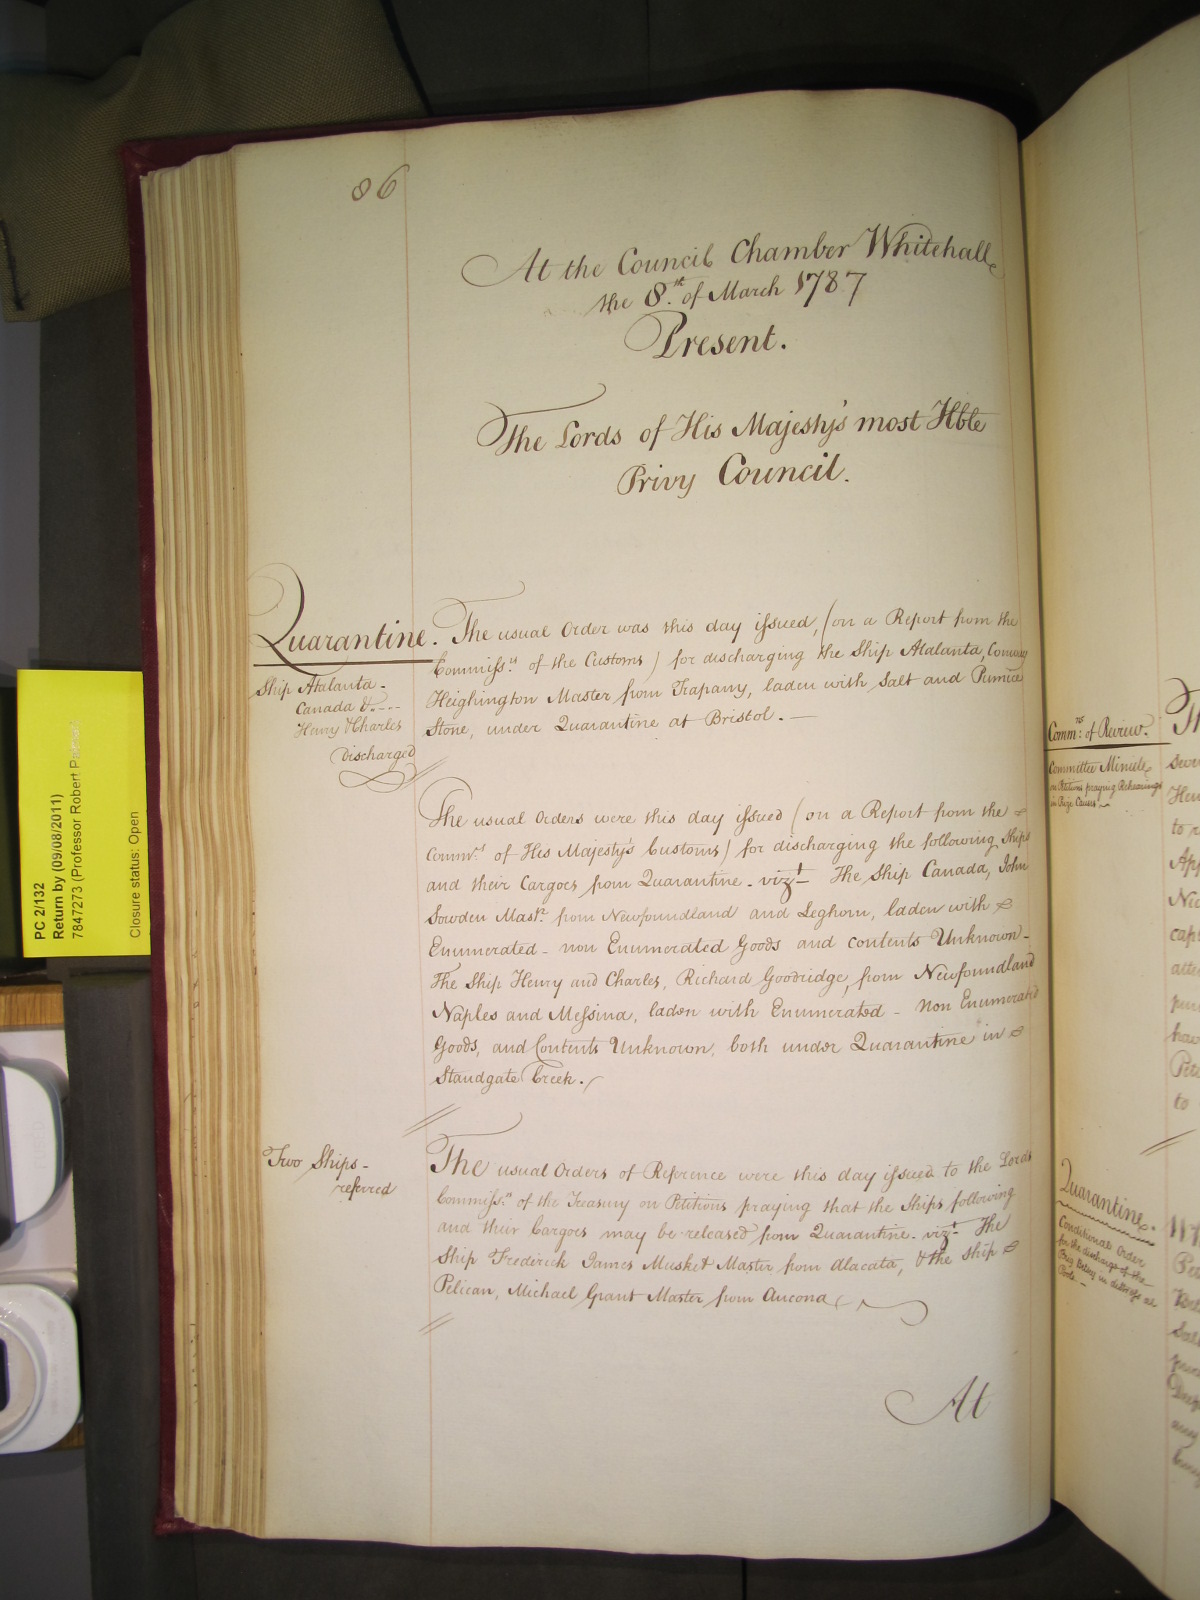 86
At the Council Chamber Whitehall
the 8.th of March 1787
Present.
The Lords of His Majesty's most Hble
Privy Council.
Quarantine.
Ship Atalanta -
Canada & ---
Henry & Charles
Discharged
The usual Order was this day issued, (on a Report from the
Commiss.rs of the Customs) for discharging the Ship Atalanta, Conway
Heighington Master from Trapany, laden with Salt and Pumice
Stone, under Quarantine at Bristol. —
The usual Orders were this day issued (on a Report from the
Commrs. of His Majesty's Customs) for discharging the following Ships
and their Cargoes from Quarantine - vizt The Ship Canada, John
Sowden Mastr. from Newfoundland and Leghorn, laden with
Enumerated - non Enumerated Goods and contents Unknown -
The Ship Henry and Charles, Richard Goodridge, from Newfoundland
Naples and Messina, laden with Enumerated - Non Enumerated
Goods, and Contents Unknown, both under Quarantine in
Standgate Creek.
Two Ships -
referred
The usual Orders of Reference were this day issued to the Lords
Commiss.rs of the Treasury on Petitions praying that the Ships following
and their Cargoes may be released from Quarantine - vizt The
Ship Frederick James Musket Master from Alacata, & the Ship
Pelican, Michael Grant Master from Ancona
At
PC 2/132
Return by (09/08/2011)
7847273 (Professor Robert
Closure status: Open
Comm.rs of Review.
Committee Minute
on Petitions praying Rehearings
in Prize Causes
Quarantine
Conditional Order
for the discharge of the
Brig Betsy in
Poole -